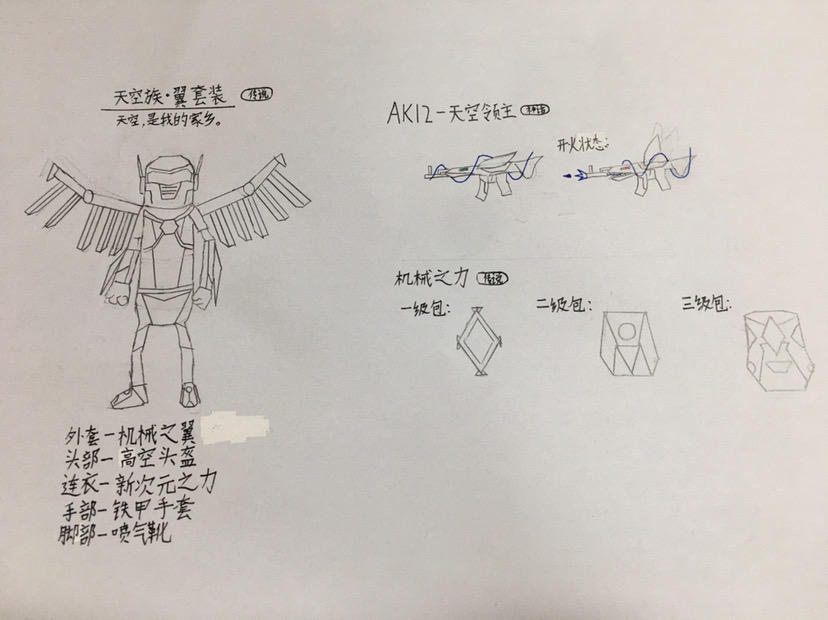 天空族·翼套装 传说
天空,是我的家乡。
外套-机械之翼
头部-高空头盔
连衣-新次元之力
手部-铁甲手套
脚部-喷气靴
AK12-天空领主
开火状态:
机械之力 传说
一级包: 二级包: 三级包: